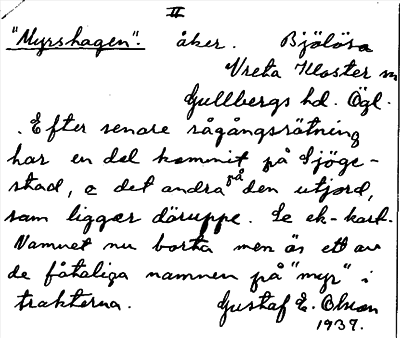 II
"Myrshagen". åker. Bjölösa
Vreta Kloster sn
Gullbergs hd. Ögl.
Efter senare rågångsrätning
har en del kommit på Sjöge-
stad, o det andra på den utjord,
som ligger däruppe. Se ek-kart.
Namnet nu borta men äs ett av
de fåtaliga namnen på "myr" i
trakterna. Gustaf E. Olsson
1937.